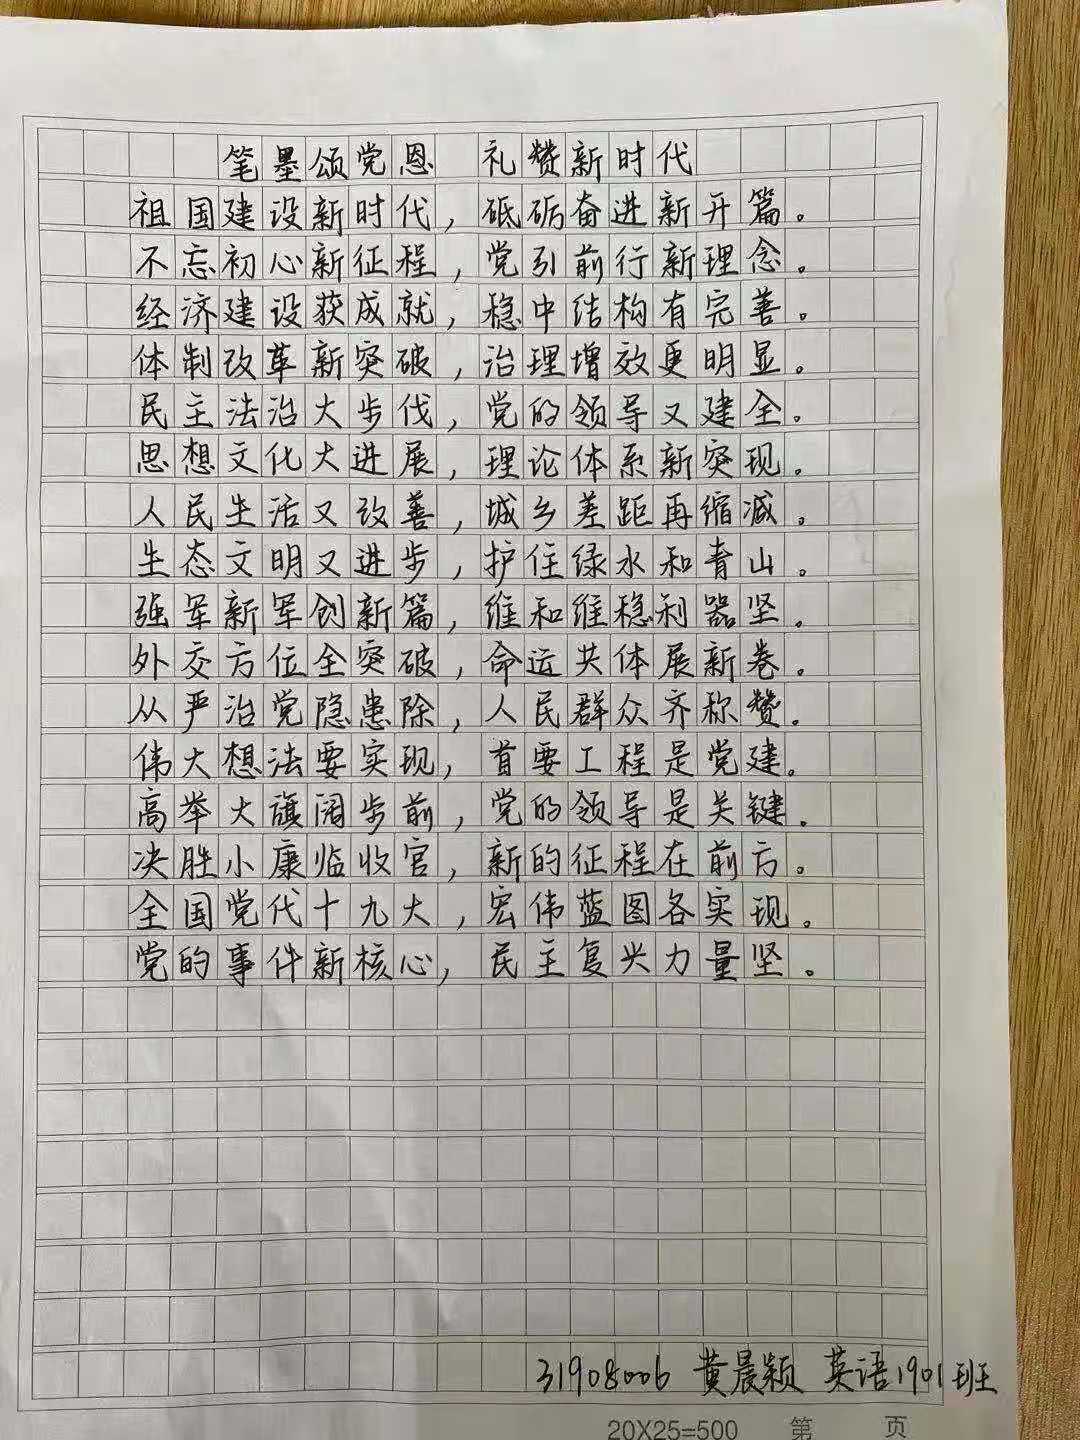 笔墨颂党恩 礼赞新时代
祖国建设新时代，砥砺奋进新开篇。
不忘初心新征程，党引前行新理念。
经济建设获成就，稳中结构有完善。
体制改革新突破，治理增效更明显。
民主法治大步伐，党的领导又建全。
思想文化大进展，理论体系新突现。
人民生活又改善，城乡差距再缩减。
生态文明又进步，护住绿水和青山。
强军新军创新篇，维和维稳利器坚。
外交方位全突破，命运共体展新卷。
从严治党隐患除，人民群众齐称赞。
伟大想法要实现，首要工程是党建。
高举大旗阔步前，党的领导是关键。
决胜小康临收官，新的征程在前方。
全国党代十九大，宏伟蓝图各实现。
党的事件新核心，民主复兴力量坚。
31908006 黄晨颖 英语1901班
20X25=500 第 页